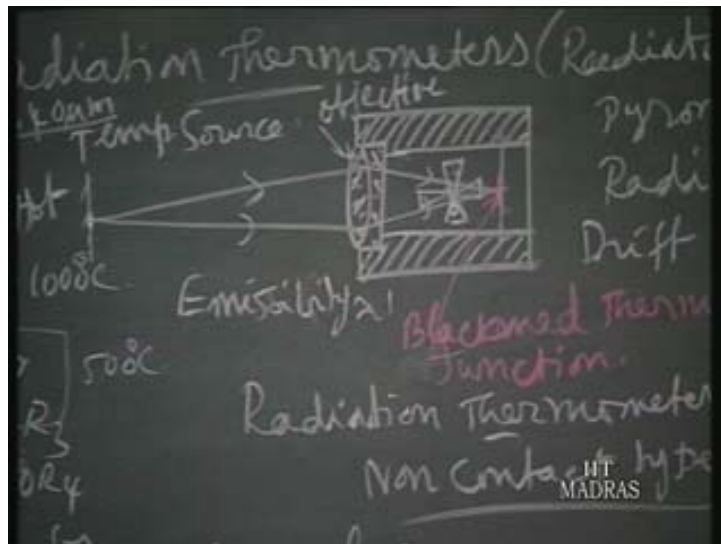 adiation Thermometers (Raediat
Temp Source objective
Pyrom
Hot
Radi
1000°C
Drift
Emissibility ≈ 1
Blackened Therm
Junction.
500°C
R3
Radiation Thermometer
OR4
Non Contact type
IIT
MADRAS